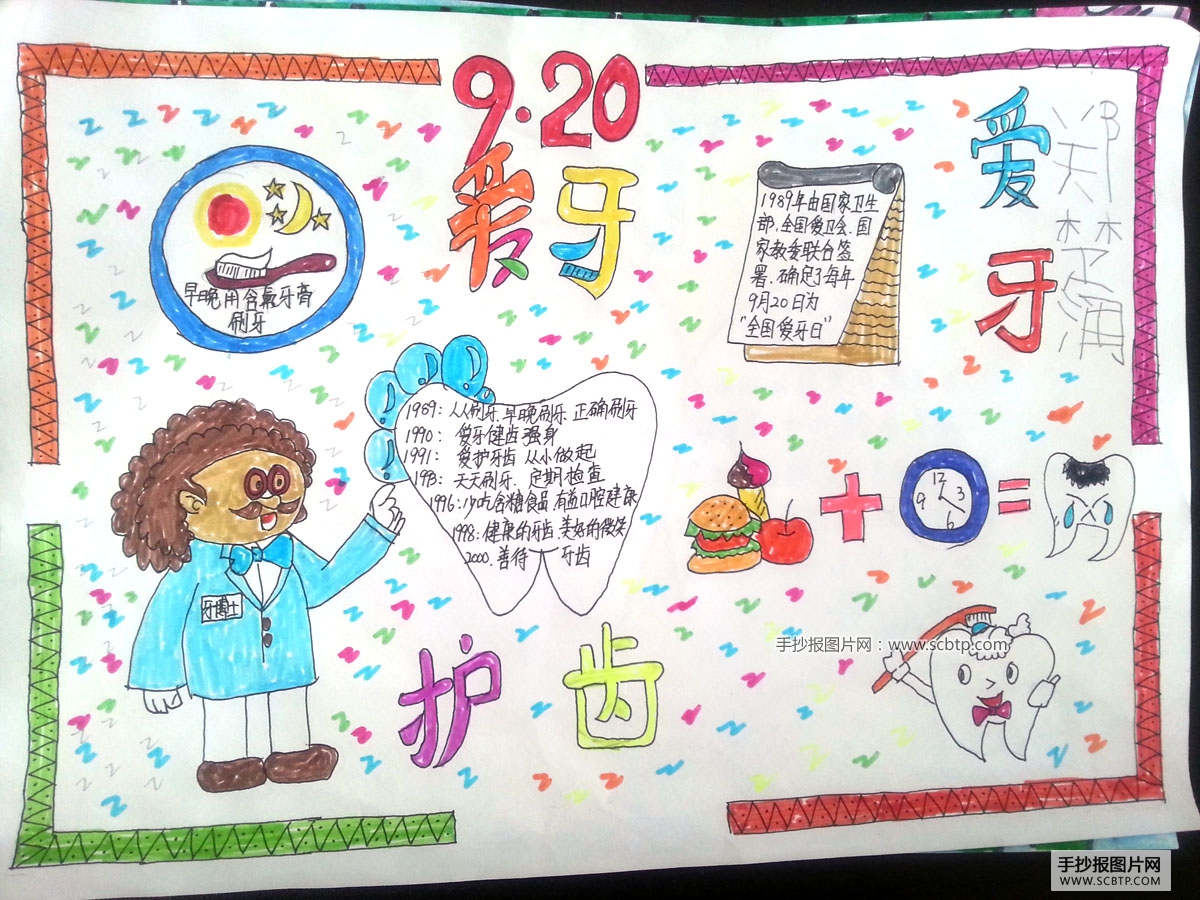 9·20
爱牙
早晚用含氟牙膏
刷牙
1989年由国家卫生
部、全国爱卫会、国
家教委联合签
署,确定了每年
9月20日为
"全国爱牙日"
爱牙
郑楚涵
1989:人人刷牙 早晚刷牙 正确刷牙
1990: 爱牙健齿强身
1991: 爱护牙齿 从小做起
1993: 天天刷牙、定期检查
1996:少吃含糖食品,有益口腔健康
1998:健康的牙齿,美好的微笑
2000.善待 牙齿
12
9 3
6
牙博士
护齿
手抄报图片网:www.scbtp.com
手抄报图片网
WWW.SCBTP.COM